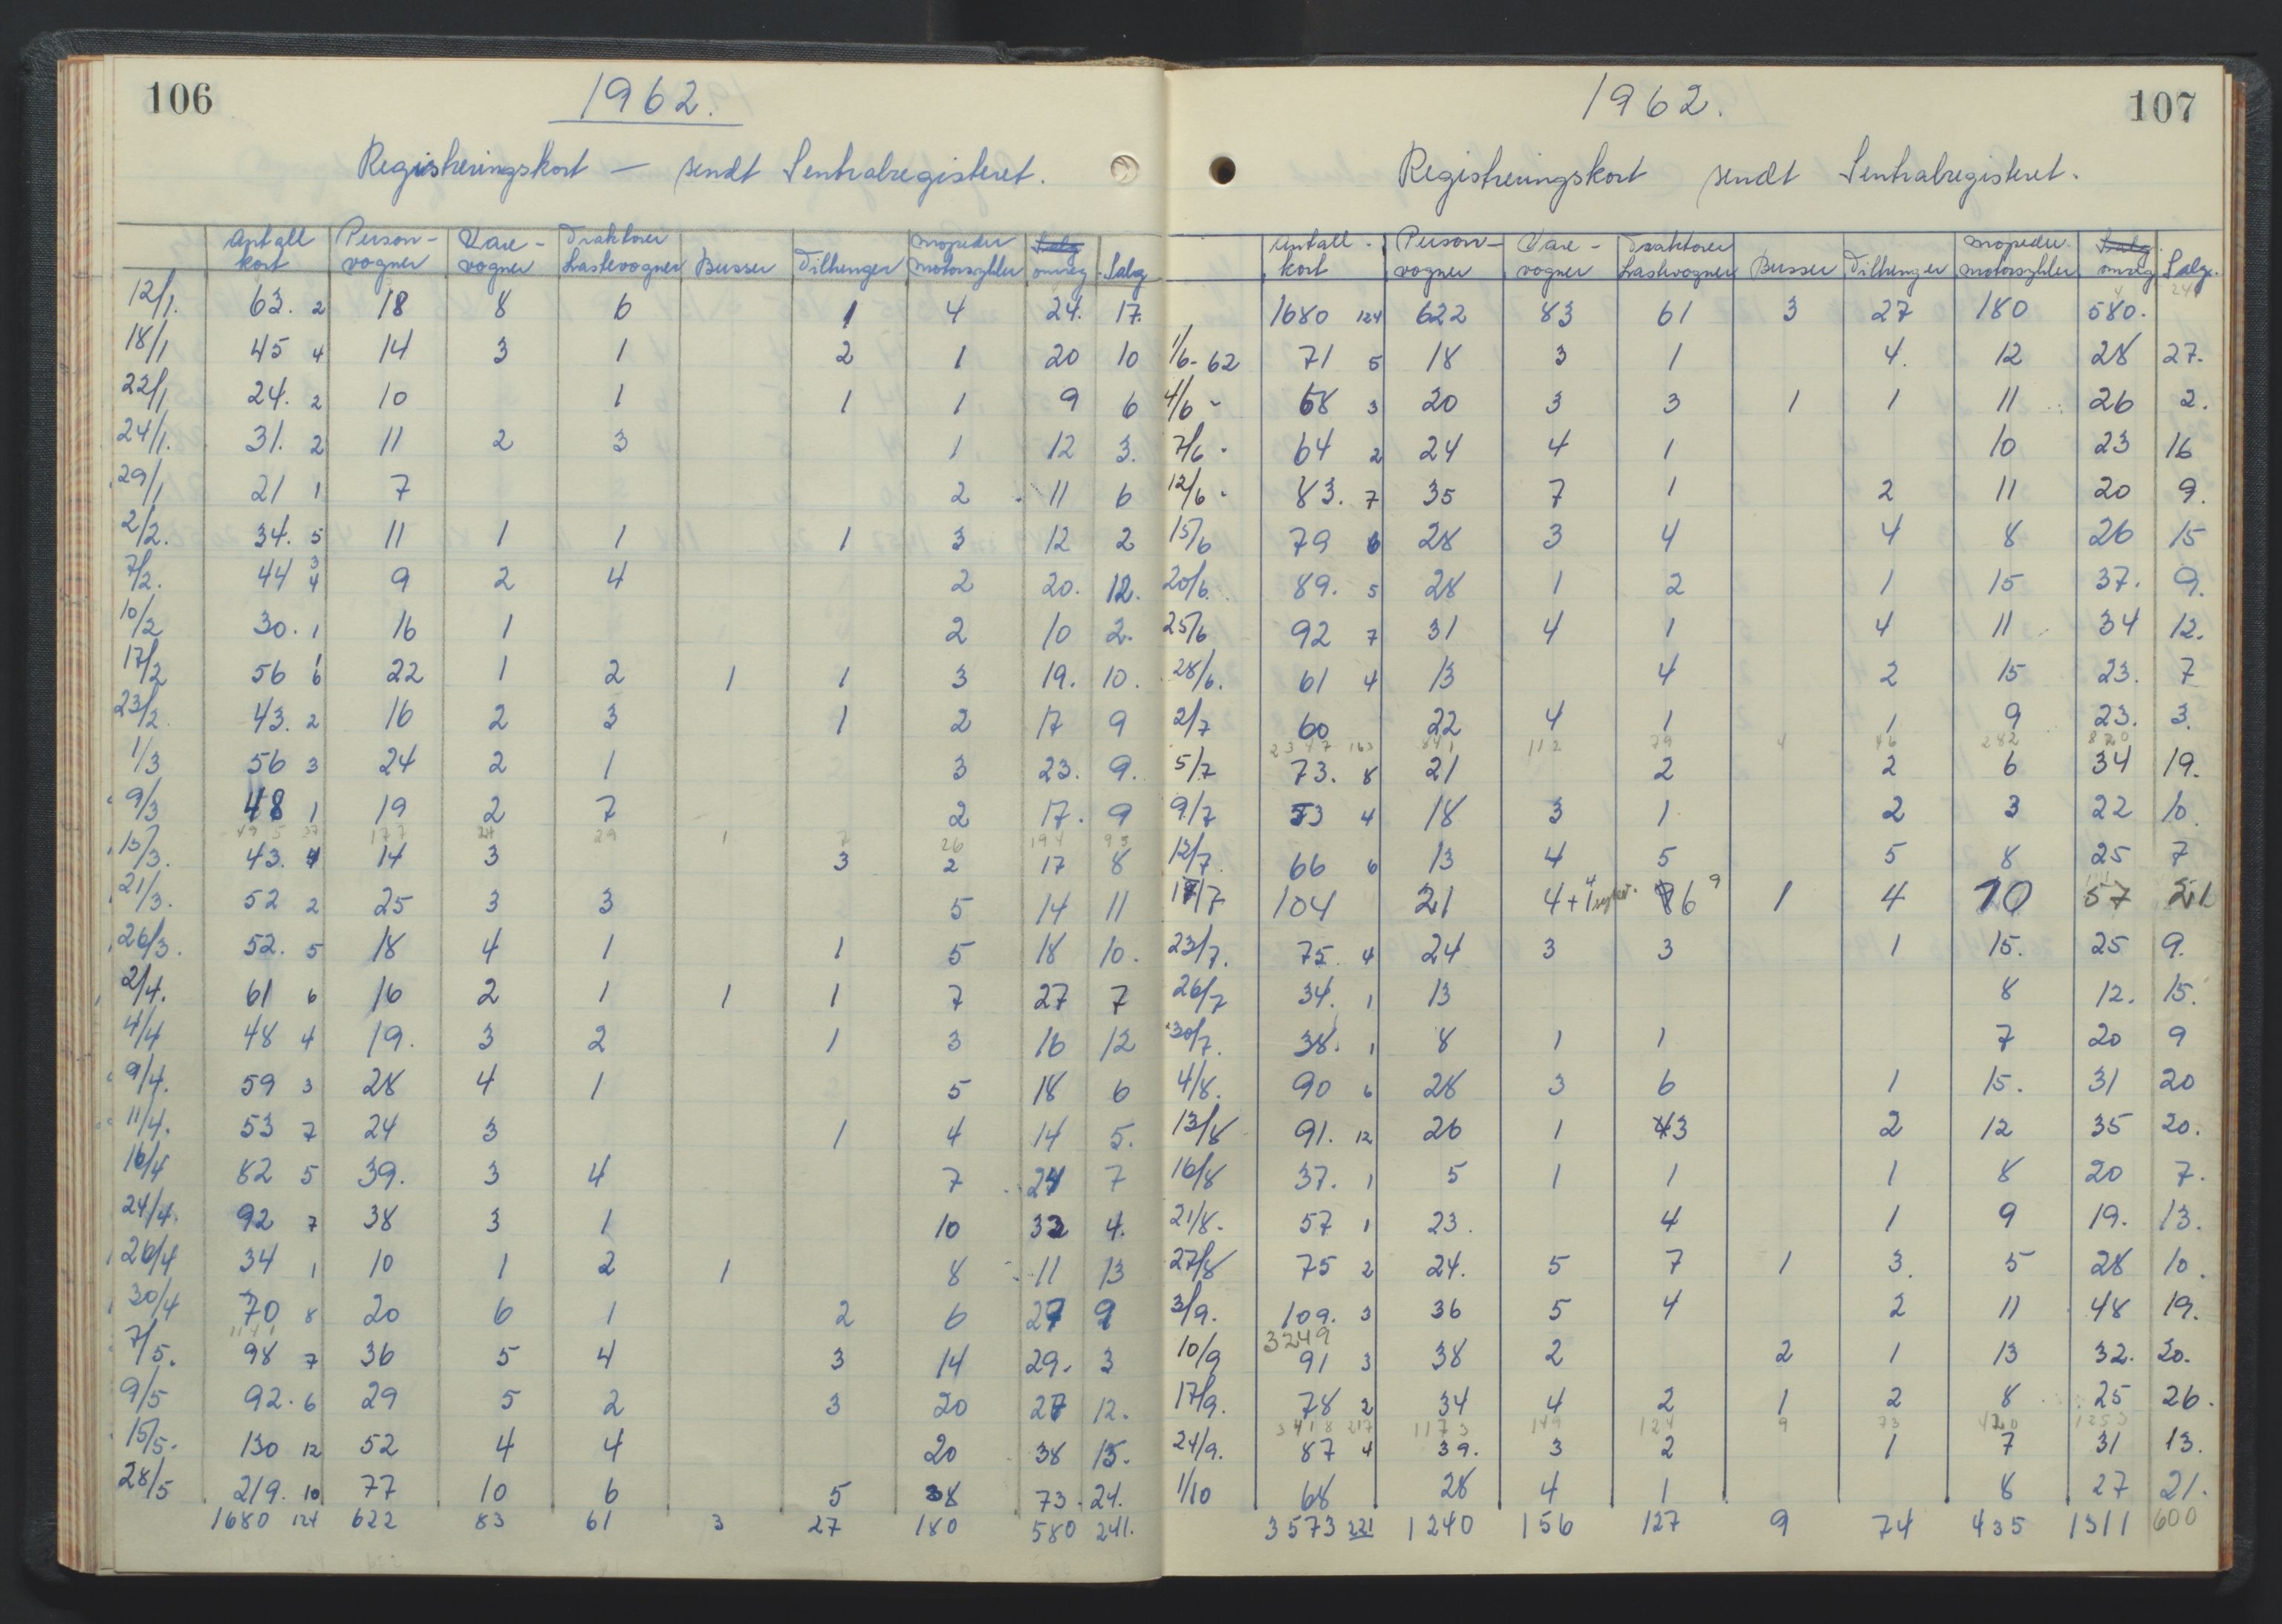 106
1962.
Registreringskort — sendt Sentralregisteret.
Antall kort Person-vogner Vare-vogner Traktorer Lastevogner Busser Tilhenger mopeder motorsykler Salg omreg Salg
12/1. 63. 2 18 8 6 1 4 24. 17.
18/1 45 4 14 3 1 2 1 20 10
22/1 24. 2 10 1 1 1 9 6
24/1. 31. 2 11 2 3 1 12 3.
29/1 21 1 7 2 11 6
2/2. 34. 5 11 1 1 1 3 12 2
7/2. 44 3 4 9 2 4 2 20. 12.
10/2 30. 1 16 1 2 10 2.
17/2 56 1 6 22 1 2 1 1 3 19. 10.
23/2. 43. 2 16 2 3 1 2 17 9
1/3 56 3 24 2 1 3 23. 9.
9/3 48 1 19 2 7 2 17. 9
495 37 177 24 29 1 7 26 194 95
15/3. 43. 4 14 3 3 2 17 8
21/3. 52 2 25 3 3 5 14 11
26/3. 52. 5 18 4 1 1 5 18 10.
2/4. 61 6 16 2 1 1 1 7 27 7
4/4 48 4 19. 3 2 1 3 16 12
9/4. 59 3 28 4 1 5 18 6
11/4. 53 7 24 3 1 4 14 5.
16/4 82 5 39. 3 4 7 24 7
24/4. 92 7 38 3 1 10 32 4.
26/4 34 1 10 1 2 1 8 11 13
30/4 70 8 20 6 1 2 6 27 9
1141
7/5. 98 7 36 5 4 3 14 29. 3
9/5 92. 6 29 5 2 3 20 27 12.
15/5. 130 12 52 4 4 20 38 15.
28/5 219. 10 77 10 6 5 38 73. 24.
1680 124 622 83 61 3 27 180 580 241.
107
1962.
Registreringskort sendt Sentralregisteret.
Antall kort Person-vogner Vare-vogner Traktorer Lastevogner Busser Tilhenger mopeder motorsykler Salg omreg Salg.
1680 124 622 83 61 3 27 180 580. 241
1/6-62 71 5 18 3 1 4. 12 28 27.
4/6 - 68 3 20 3 3 1 1 11 26 2.
7/6 - 64 2 24 4 1 10 23 16
12/6 - 83. 7 35 7 1 2 11 20 9.
15/6 79 6 28 3 4 4 8 26 15
20/6. 89. 5 28 1 2 1 15 37. 9.
25/6 92 7 31 4 1 4 11 34 12.
28/6. 61 4 13 4 2 15 23. 7
2/7 60 22 4 1 1 9 23. 3.
2347 163 841 112 79 4 46 282 820
5/7 73. 8 21 2 2 6 34 19.
9/7 53 4 18 3 1 2 3 22 10.
12/7. 66 6 13 4 5 5 8 25 7
17/7 104 21 4+1 6 9 1 4 10 57 21
23/7. 75. 4 24 3 3 1 15. 25 9.
26/7 34. 1 13 8 12. 15.
30/7. 38. 1 8 1 1 7 20 9
4/8. 90 6 28 3 6 1 15. 31 20
13/8 91. 12 26 1 43 2 12 35 20.
16/8 37. 1 5 1 1 1 8 20 7.
21/8. 57 1 23. 4 1 9 19. 13.
27/8 75 2 24. 5 7 1 3. 5 28 10.
3/9. 109. 3 36 5 4 2 11 48 19.
3249
10/9 91 3 38 2 2 1 13 32. 20.
17/9. 78 2 34 4 2 1 2 8 25 26.
3418 217 1173 149 124 9 73 420 1253
24/9. 87 4 39. 3 2 1 7 31 13.
1/10 68 28 4 1 8 27 21.
3573 221 1240 156 127 9 74 435 1311 600